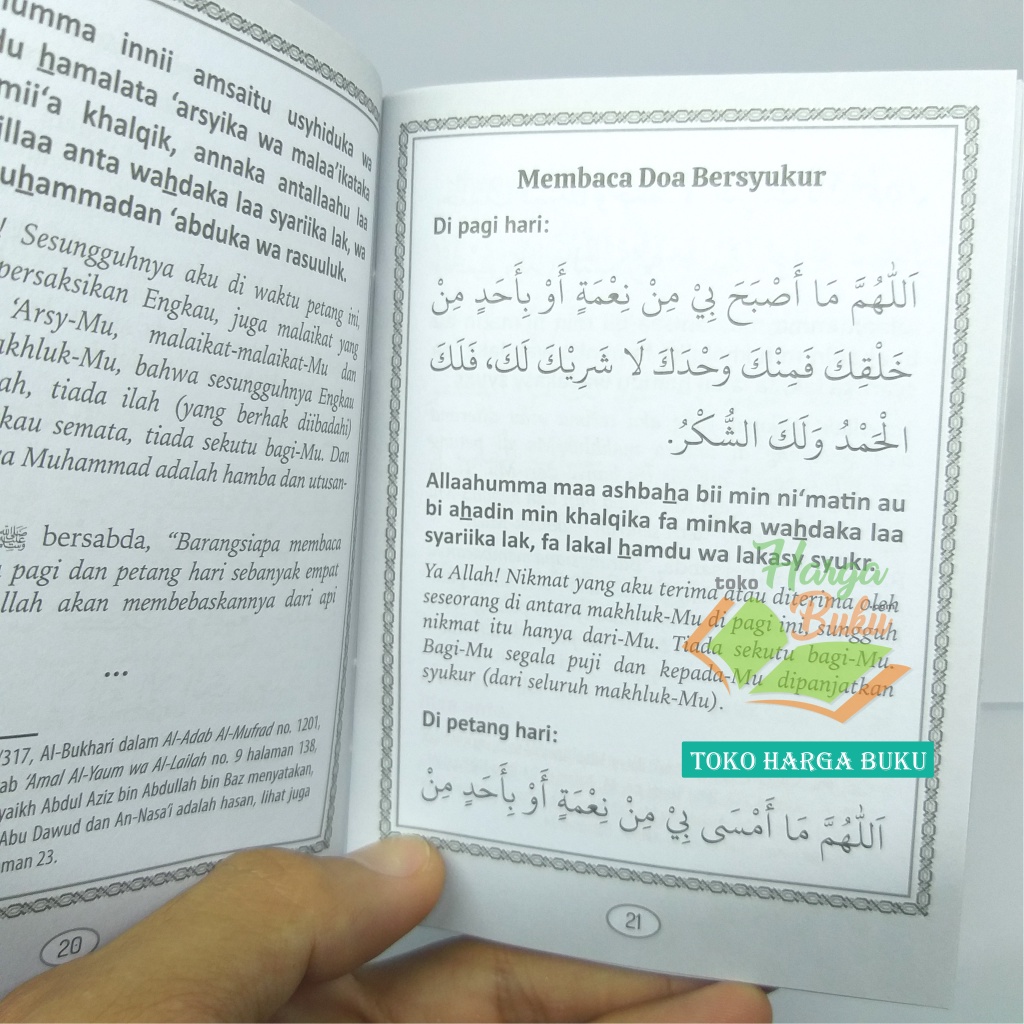 innii amsaitu usyhiduka wa
hamalata ‘arsyika wa malaa’ikataka
khalqik, annaka antallaahu laa
anta wahdaka laa syariika lak, wa
‘abduka wa rasuuluk.
! Sesungguhnya aku di waktu petang ini,
Engkau, juga malaikat yang
‘Arsy-Mu, malaikat-malaikat-Mu dan
bahwa sesungguhnya Engkau
tiada ilah (yang berhak diibadahi)
semata, tiada sekutu bagi-Mu. Dan
Muhammad adalah hamba dan utusan-
ﷺ bersabda, “Barangsiapa membaca
pagi dan petang hari sebanyak empat
akan membebaskannya dari api
...
/317, Al-Bukhari dalam Al-Adab Al-Mufrad no. 1201,
‘Amal Al-Yaum wa Al-Lailah no. 9 halaman 138,
Abdul Aziz bin Abdullah bin Baz menyatakan,
Abu Dawud dan An-Nasa’i adalah hasan, lihat juga
23.
20
Membaca Doa Bersyukur
Di pagi hari:
اَللّٰهُمَّ مَا أَصْبَحَ بِيْ مِنْ نِعْمَةٍ أَوْ بِأَحَدٍ مِنْ
خَلْقِكَ فَمِنْكَ وَحْدَكَ لَا شَرِيْكَ لَكَ، فَلَكَ
الْحَمْدُ وَلَكَ الشُّكْرُ.
Allaahumma maa ashbaha bii min ni‘matin au
bi ahadin min khalqika fa minka wahdaka laa
syariika lak, fa lakal hamdu wa lakasy syukr.
Ya Allah! Nikmat yang aku terima atau diterima oleh
seseorang di antara makhluk-Mu di pagi ini, sungguh
nikmat itu hanya dari-Mu. Tiada sekutu bagi-Mu.
Bagi-Mu segala puji dan kepada-Mu dipanjatkan
syukur (dari seluruh makhluk-Mu).
Di petang hari:
اَللّٰهُمَّ مَا أَمْسَى بِيْ مِنْ نِعْمَةٍ أَوْ بِأَحَدٍ مِنْ
21
toko Harga
Buku
TOKO HARGA BUKU